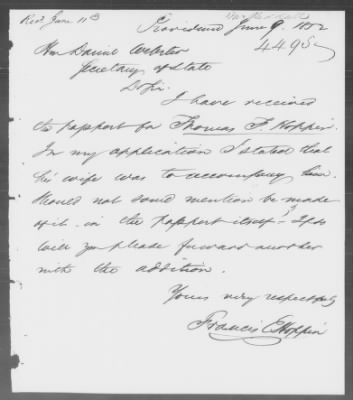 Recd June 11th
Providence June 9. 1852
4495
Hon Daniel Webster
Secretary of State
D. Sir.
I have received
the passport for Thomas F. Hoppin
In my application I stated that
his wife was to accompany him.
Should not some mention be made
of it in the passport itself? If so
will you please forward another
with the addition.
Yours very respectfully
Francis E Hoppin